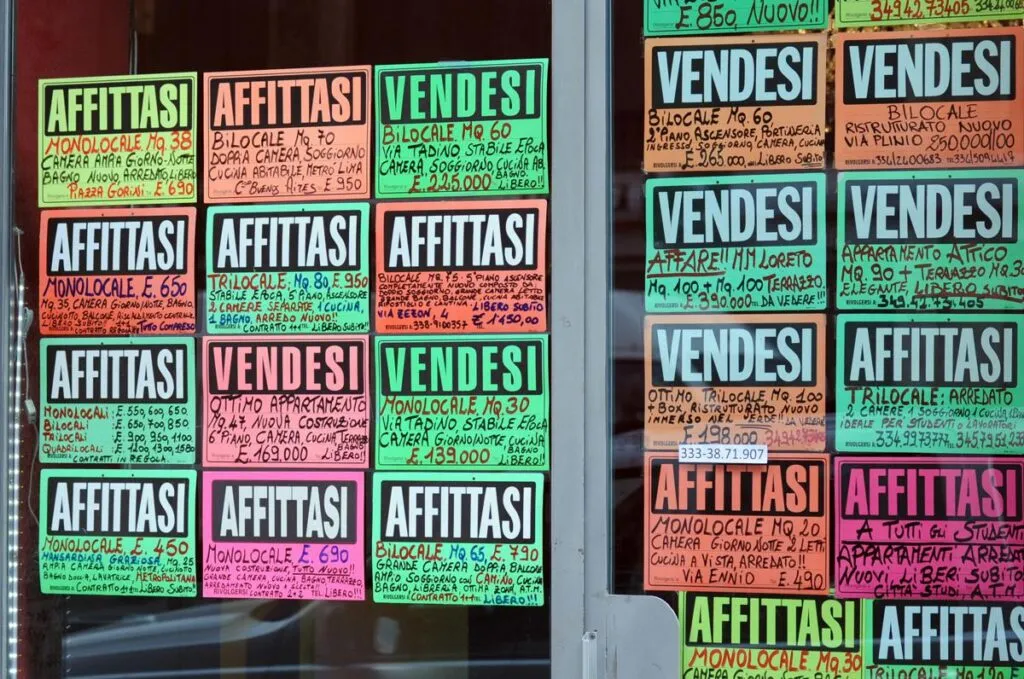 AFFITTASI
MONOLOCALE Mq. 38
CAMERA AMPIA GIORNO-NOTTE
BAGNO NUOVO, ARREDATO LIBERO!
PIAZZA GORINI E. 690
AFFITTASI
BILOCALE Mq 70
DOPPIA CAMERA, SOGGIORNO
CUCINA ABITABILE, METRO LIMA
C.so BUENOS AIRES E. 950
VENDESI
BILOCALE MQ. 60
VIA TADINO, STABILE EPOCA
CAMERA, SOGGIORNO, CUCINA AB.
BAGNO.
E. 225.000 LIBERO!!
AFFITTASI
MONOLOCALE, E. 650
MQ. 35, CAMERA GIORNO/NOTTE, BAGNO,
CUCINOTTO, BALCONE,
LIBERO SUBITO! TUTTO COMPRESO
AFFITTASI
TRILOCALE, MQ. 80, E. 950
STABILE EPOCA, 5° PIANO, ASCENSORE
2 CAMERE SEPARATE, 1 CUCINA,
1 BAGNO, ARREDO NUOVO!!
CONTRATTO 1+1 LIBERO SUBITO!
AFFITTASI
BILOCALE MQ. 75 - 5° PIANO ASCENSORE
COMPLETAMENTE NUOVO COMPOSTO DA
DOPPIO SOGGIORNO, GRANDE CAMERA LETTO
GRANDE BAGNO, BALCONE, CUCINA ABITABILE
RIPOSTIGLIO E CANTINA. LIBERO SUBITO
VIA ZEZON, 4 E 1150,00
338-9100357
AFFITTASI
MONOLOCALI: E. 550, 600, 650
BILOCALI: E. 650, 700, 850
TRILOCALI: E. 900, 950, 1100
QUADRILOCALI: E. 1200, 1300, 1580
CONTRATTI IN REGOLA.
VENDESI
OTTIMO APPARTAMENTO
MQ. 47, NUOVA COSTRUZIONE
6° PIANO, CAMERA, CUCINA, TERRAZZO
BAGNO
E. 169.000 LIBERO!!
VENDESI
MONOLOCALE, MQ. 30
VIA TADINO, STABILE EPOCA
CAMERA GIORNO/NOTTE CUCINA
BAGNO
E. 139.000 LIBERO!
AFFITTASI
MONOLOCALE, E. 450
MANSARDINA GRAZIOSA, MQ. 25
AMPIA CAMERA GIORNO NOTTE, CUCINA
BAGNO DOCCIA, LAVATRICE, METROPOLITANA
CONTRATTO 1+1 LIBERO SUBITO!
AFFITTASI
MONOLOCALE E. 690
NUOVA COSTRUZIONE, TUTTO NUOVO!!
GRANDE CAMERA, CUCINA, BAGNO, TERRAZZO,
ARREDAMENTO NUOVO E ELEGANTE
RIVOLGERSI CONTRATTO 2+2 TEL. LIBERO!!!
AFFITTASI
BILOCALE, MQ. 65, E. 790
GRANDE CAMERA DOPPIA, BALCONE
AMPIO SOGGIORNO CON CAMINO, CUCINA
BAGNO, LIBRERIA, OTTIMA ZONA, A.T.M.
RIVOLGERSI CONTRATTO 1+1 TEL. LIBERO!!!
E. 850, NUOVO!!
3494273405
VENDESI
BILOCALE MQ. 60
2° PIANO, ASCENSORE, PORTINERIA
INGRESSO, SOGGIORNO, CAMERA, CUCINA
E 265.000 LIBERO SUBITO
VENDESI
BILOCALE
RISTRUTTURATO NUOVO
VIA PLINIO 250.000/00
VENDESI
AFFARE!! MM LORETO
MQ. 100 + MQ 100 TERRAZZO
E. 390.000 DA VEDERE!!
VENDESI
APPARTAMENTO ATTICO
MQ. 90 + TERRAZZO MQ. 30
ELEGANTE, LIBERO SUBITO
349.42.73.405
VENDESI
OTTIMO TRILOCALE MQ. 100
+ BOX RISTRUTTURATO NUOVO
IMMERSO NEL VERDE!! DA VEDERE
E 198.000
333-38.71.907
AFFITTASI
TRILOCALE: ARREDATO
2 CAMERE 1 SOGGIORNO 1 CUCINA
IDEALE PER STUDENTI O LAVORATORI
AFFITTASI
MONOLOCALE MQ. 20
CAMERA GIORNO NOTTE 2 LETTI
CUCINA A VISTA, ARREDATO!!
VIA ENNIO E. 490
AFFITTASI
A TUTTI GLI STUDENTI
APPARTAMENTI ARREDATI
NUOVI, LIBERI SUBITO
CITTA' STUDI, A.T.M.
AFFITTASI
MONOLOCALE MQ. 30
CAMERA GIORNO NOTTE
AFFITTAS
TRILOCALE MQ. 120 E.